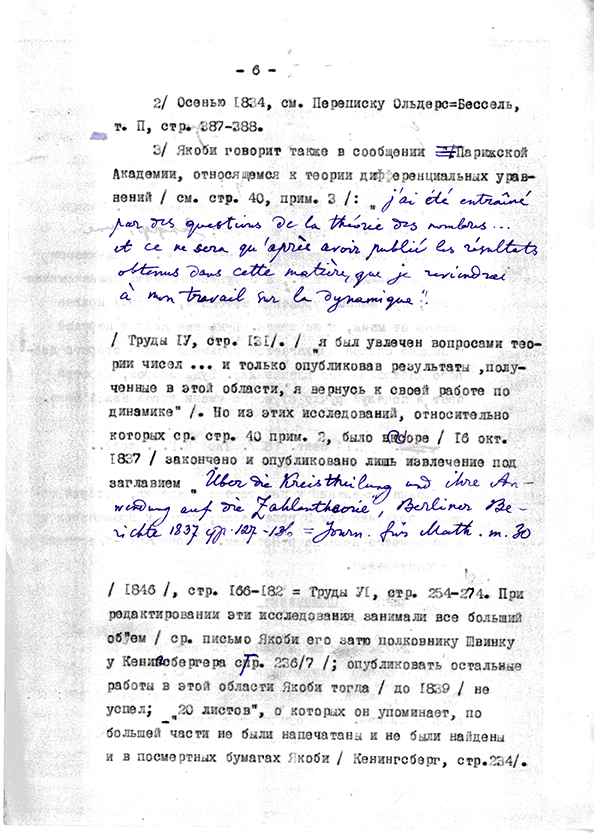 - 6 -
2/ Осенью 1834, см. Переписку Ольдерс=Бессель,
т. П, стр. 387-388.
3/ Якоби говорит также в сообщении Парижской
Академии, относящемся к теории дифференциальных урав-
нений / см. стр. 40, прим. 3 /: „j'ai été entraîné
par des questions de la théorie des nombres...
et ce ne sera qu'après avoir publié les résultats
obtenus dans cette matière, que je reviendrai
à mon travail sur la dynamique".
/ Труды IУ, стр. 131/. / „я был увлечен вопросами тео-
рии чисел ... и только опубликовав результаты ,полу-
ченные в этой области, я вернусь к своей работе по
динамике" /. Но из этих исследований, относительно
которых ср. стр. 40 прим. 2, было вскоре / 16 окт.
1837 / закончено и опубликовано лишь извлечение под
заглавием „Über die Kreistheilung und ihre An-
wendung auf die Zahlentheorie", Berliner Be-
richte 1837 стр. 127-136 = Journ. für Math. т. 30
/ 1846 /, стр. 166-182 = Труды УI, стр. 254-274. При
редактировании эти исследования занимали все больший
об"ем / ср. письмо Якоби его зятю полковнику Швинку
у Кенигсбергера стр. 236/7 /; опубликовать остальные
работы в этой области Якоби тогда / до 1839 / не
успел; „20 листов", о которых он упоминает, по
большей части не были напечатаны и не были найдены
и в посмертных бумагах Якоби / Кенингсберг, стр.234/.